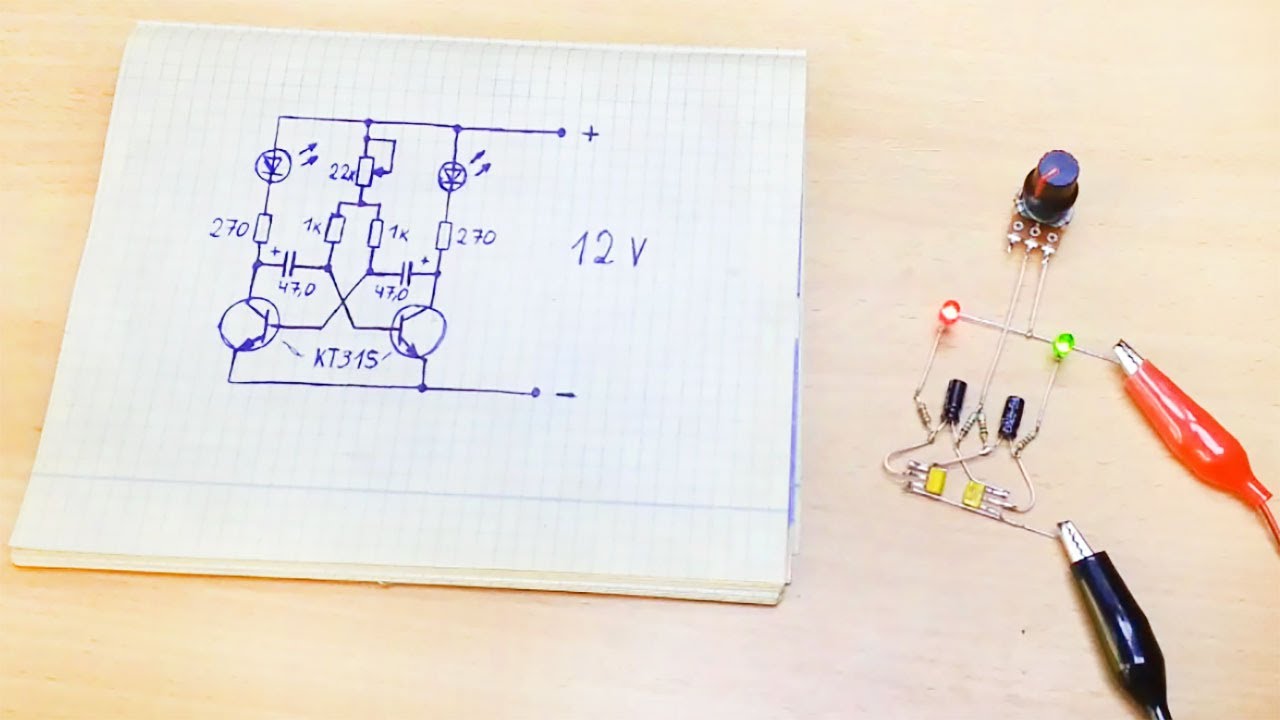 +
22к
270
1к
1к
270
12 V
+
+
47,0
47,0
КТ315
−